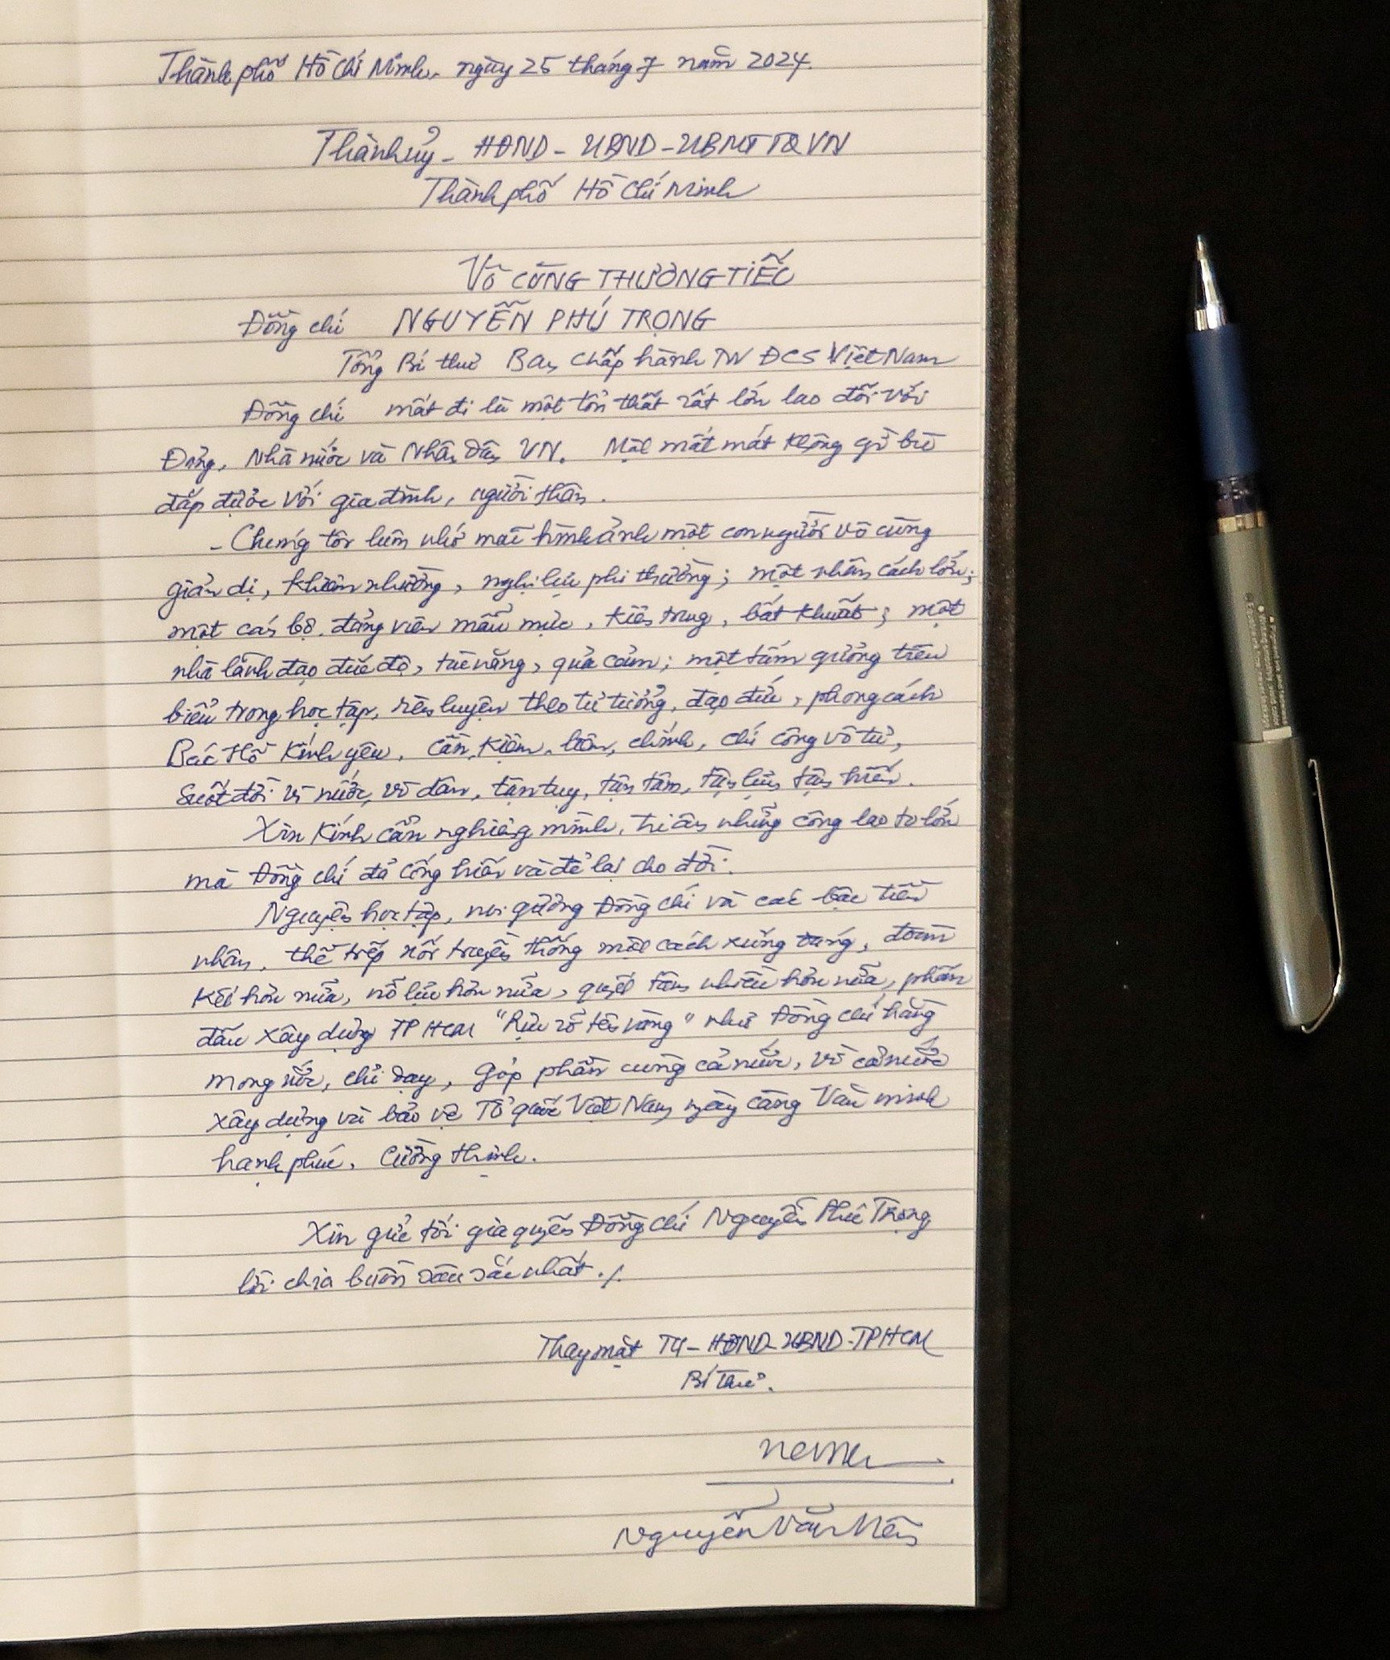 Thành phố Hồ Chí Minh, ngày 25 tháng 7 năm 2024.
Thành ủy - HĐND - UBND - UBMTTQVN
Thành phố Hồ Chí Minh
Vô CÙNG THƯƠNG TIẾC
Đồng chí NGUYỄN PHÚ TRỌNG
Tổng Bí thư Ban chấp hành TW ĐCS Việt Nam
Đồng chí mất đi là một tổn thất rất lớn lao đối với
Đảng, Nhà nước và Nhân Dân VN. Một mất mát không gì bù
đắp được với gia đình, người thân.
- Chúng tôi luôn nhớ mãi hình ảnh một con người vô cùng
giản dị, khiêm nhường, nghị lực phi thường; một nhân cách lớn;
một cán bộ, đảng viên mẫu mực, kiên trung, bất khuất; một
nhà lãnh đạo đức độ, tài năng, quả cảm; một tấm gương tiêu
biểu trong học tập, rèn luyện theo tư tưởng, đạo đức, phong cách
Bác Hồ kính yêu, cần, kiệm, liêm, chính, chí công vô tư,
Suốt đời vì nước, vì dân, tận tụy, tận tâm, tận lực, tận hiến.
Xin kính cẩn nghiêng mình, tri ân những công lao to lớn
mà Đồng chí đã cống hiến và để lại cho đời.
Nguyện học tập, noi gương Đồng chí và các bậc tiền
nhân, thề tiếp nối truyền thống một cách xứng đáng, đoàn
kết hơn nữa, nỗ lực hơn nữa, quyết tâm nhiều hơn nữa, phấn
đấu xây dựng TP HCM "Rực rỡ tên vàng" như Đồng chí hằng
mong ước, chỉ dạy, góp phần cùng cả nước, vì cả nước
xây dựng và bảo vệ Tổ quốc Việt Nam ngày càng Văn minh
hạnh phúc, Cường thịnh.
Xin gửi tới gia quyến Đồng chí Nguyễn Phú Trọng
lời chia buồn sâu sắc nhất./.
Thay mặt TU - HĐND - UBND - TPHCM
Bí Thư.
Nguyễn Văn Nên